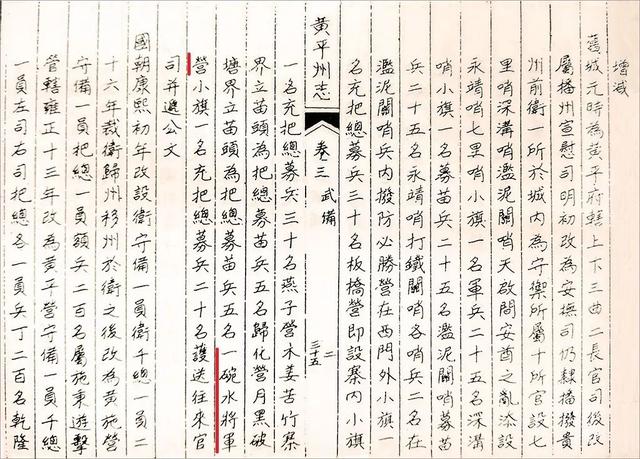 增減
舊城元時為黃平府轄上下三曲二長官司後改
屬播州宣慰司明初改為安撫司仍隸播撥貴
州前衛一所於城內為守禦所屬十所官設七
里哨深溝哨濫泥關哨天啟間安酋之亂添設
永靖哨七里哨小旗一名軍兵二十五名深溝
哨小旗一名募苗兵二十五名濫泥關哨募苗
兵二十五名永靖哨打鐵關哨各哨兵二名在
濫泥關哨兵內撥防必勝營在西門外小旗一
名充把總募兵三十名板橋營即設寨內小旗
黃平州志 卷三 武備 二 三十五
一名充把總募兵三十名燕子營木姜苦竹寨
界立苗頭為把總募苗兵五名歸化營月黑破
塘界立苗頭為把總募苗兵五名一碗水將軍
營小旗一名充把總募兵二十名護送往來官
司并遞公文
國朝康熙初年改設衛守備一員衛千總一員二
十六年裁衛歸州移州於衛之後改為黃施營
守備一員把總一員額兵二百名屬施秉遊擊
管轄雍正十三年改為黃平營守備一員千總
一員左司右司把總各一員兵丁二百名乾隆